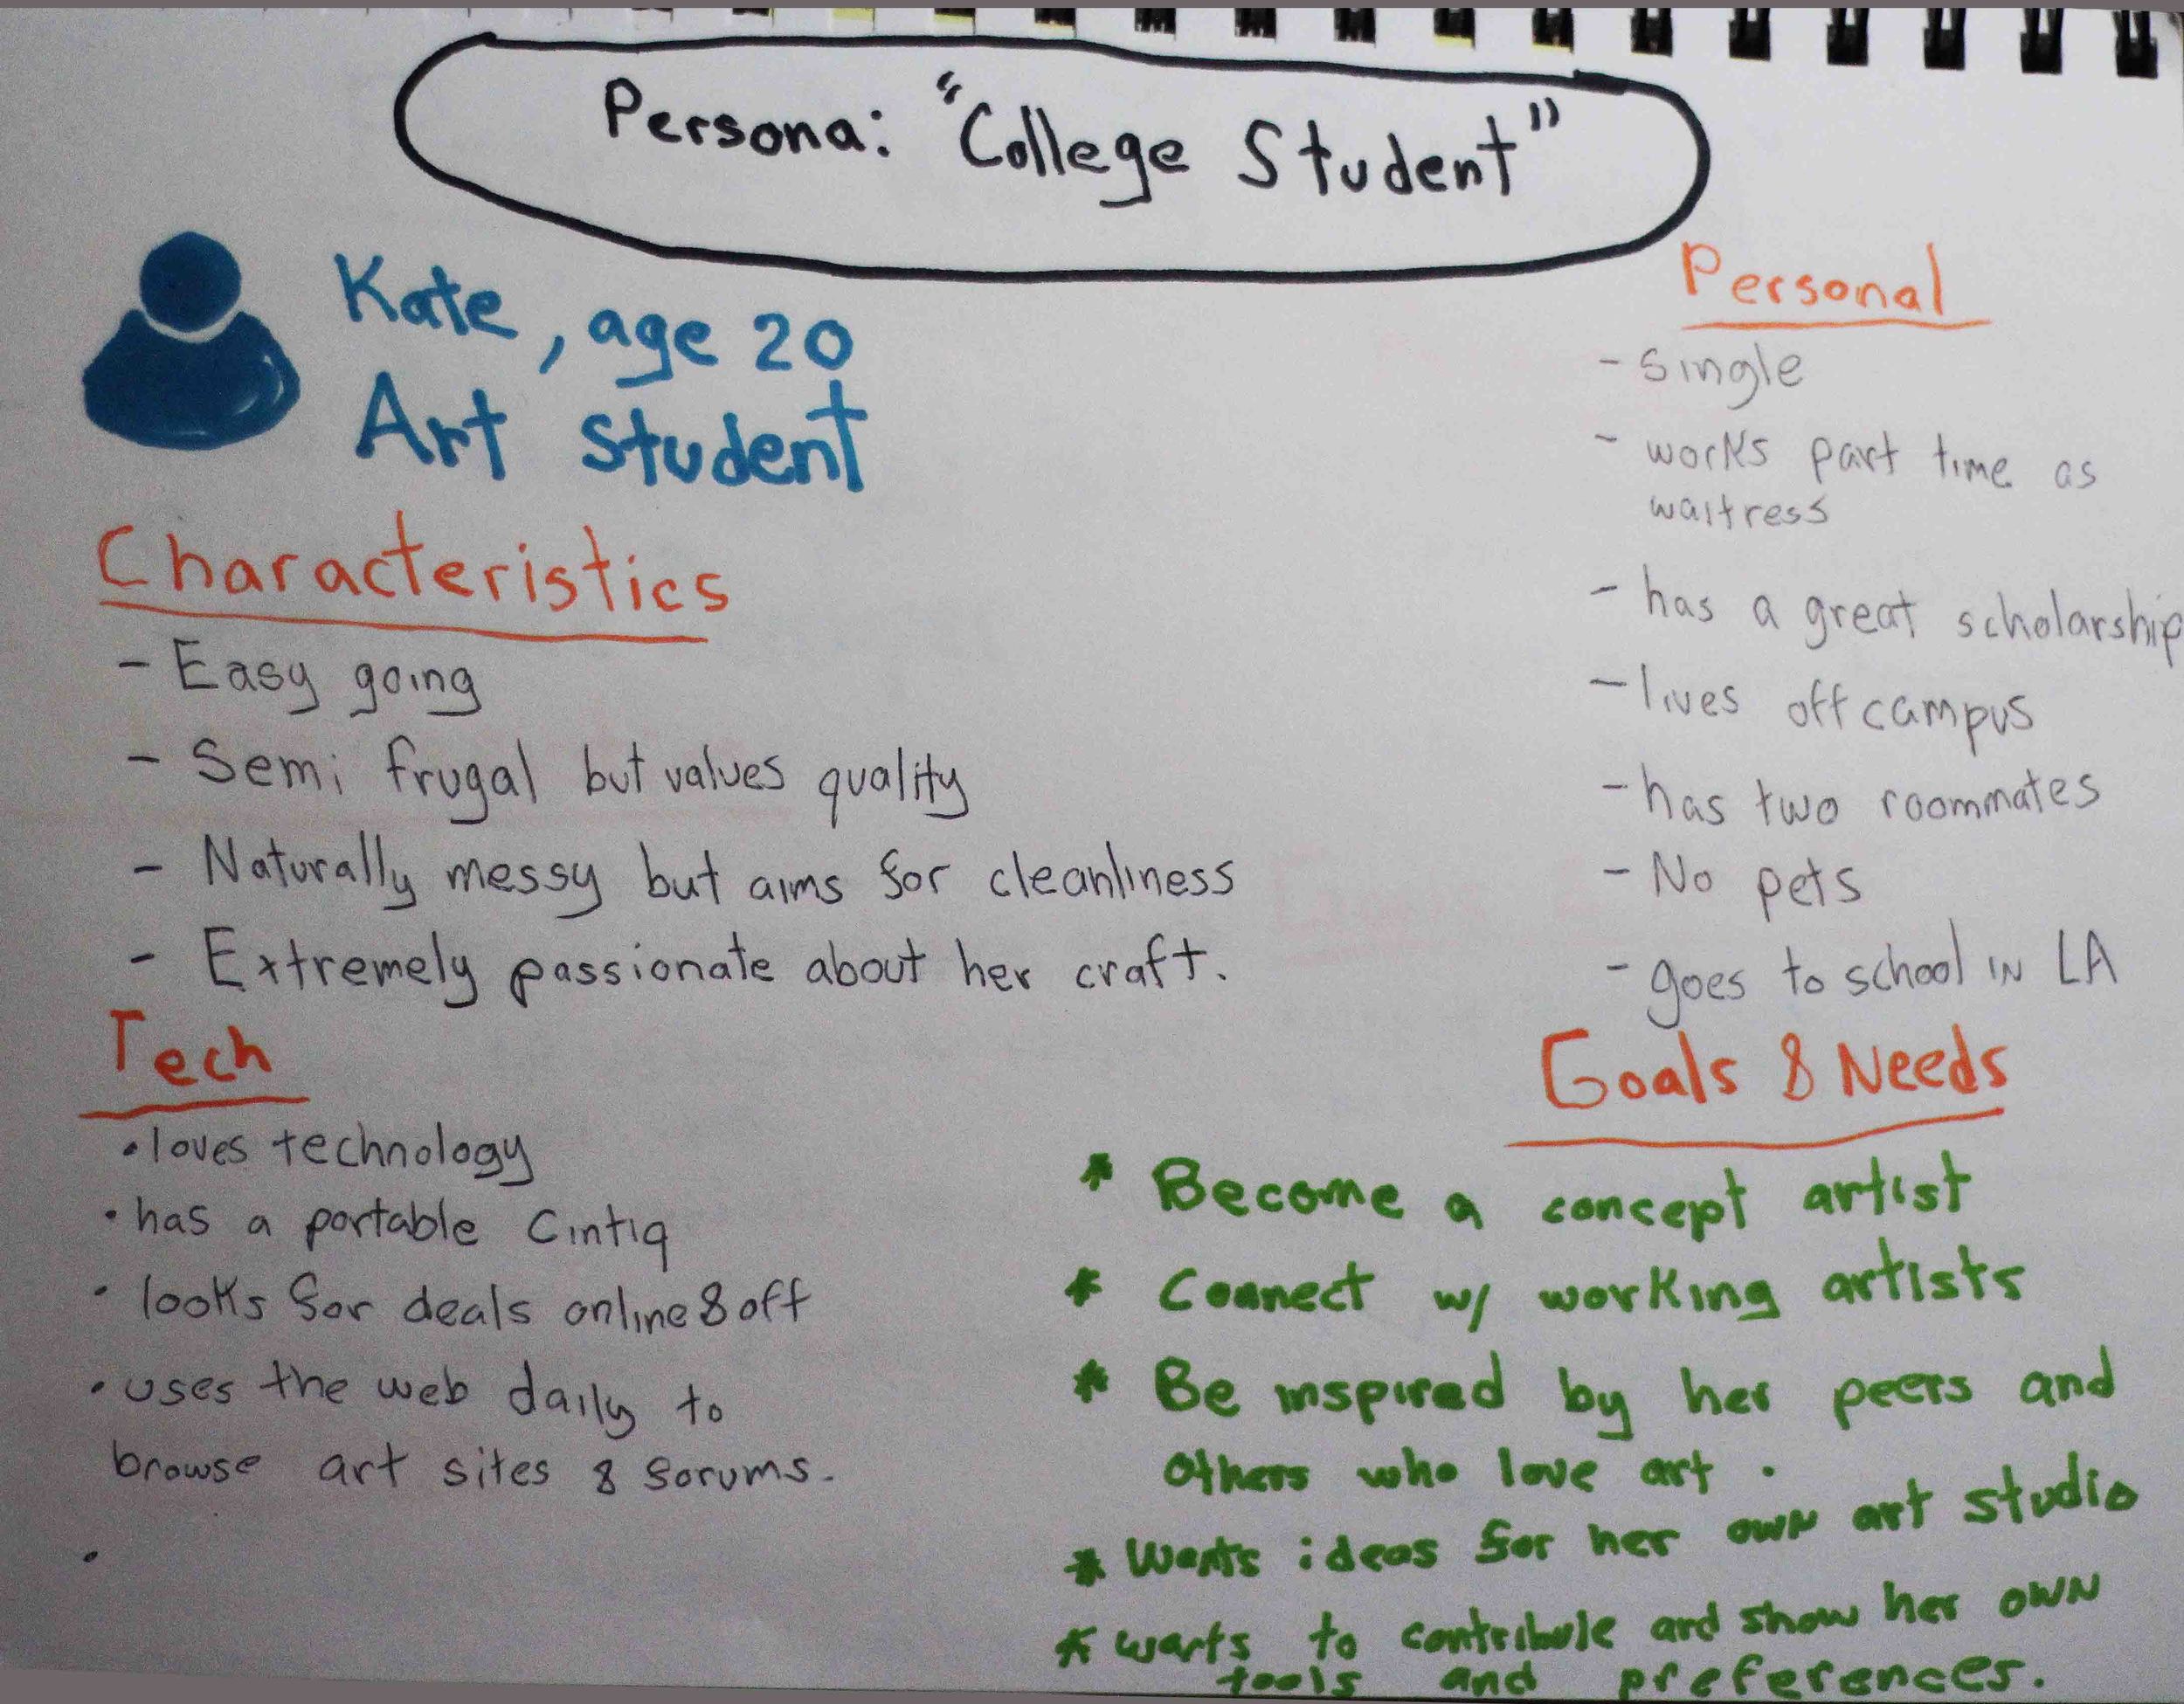 Persona: "College Student"
Kate, age 20
Art student
Characteristics
- Easy going
- Semi frugal but values quality
- Naturally messy but aims for cleanliness
- Extremely passionate about her craft.
Tech
• loves technology
• has a portable Cintiq
• looks for deals online & off
• uses the web daily to
browse art sites & forums.
•
Personal
- single
- works part time as
waitress
- has a great scholarship
- lives off campus
- has two roommates
- No pets
- goes to school in LA
Goals & Needs
* Become a concept artist
* Connect w/ working artists
* Be inspired by her peers and
others who love art.
* Wants ideas for her own art studio
* wants to contribute and show her own
tools and preferences.